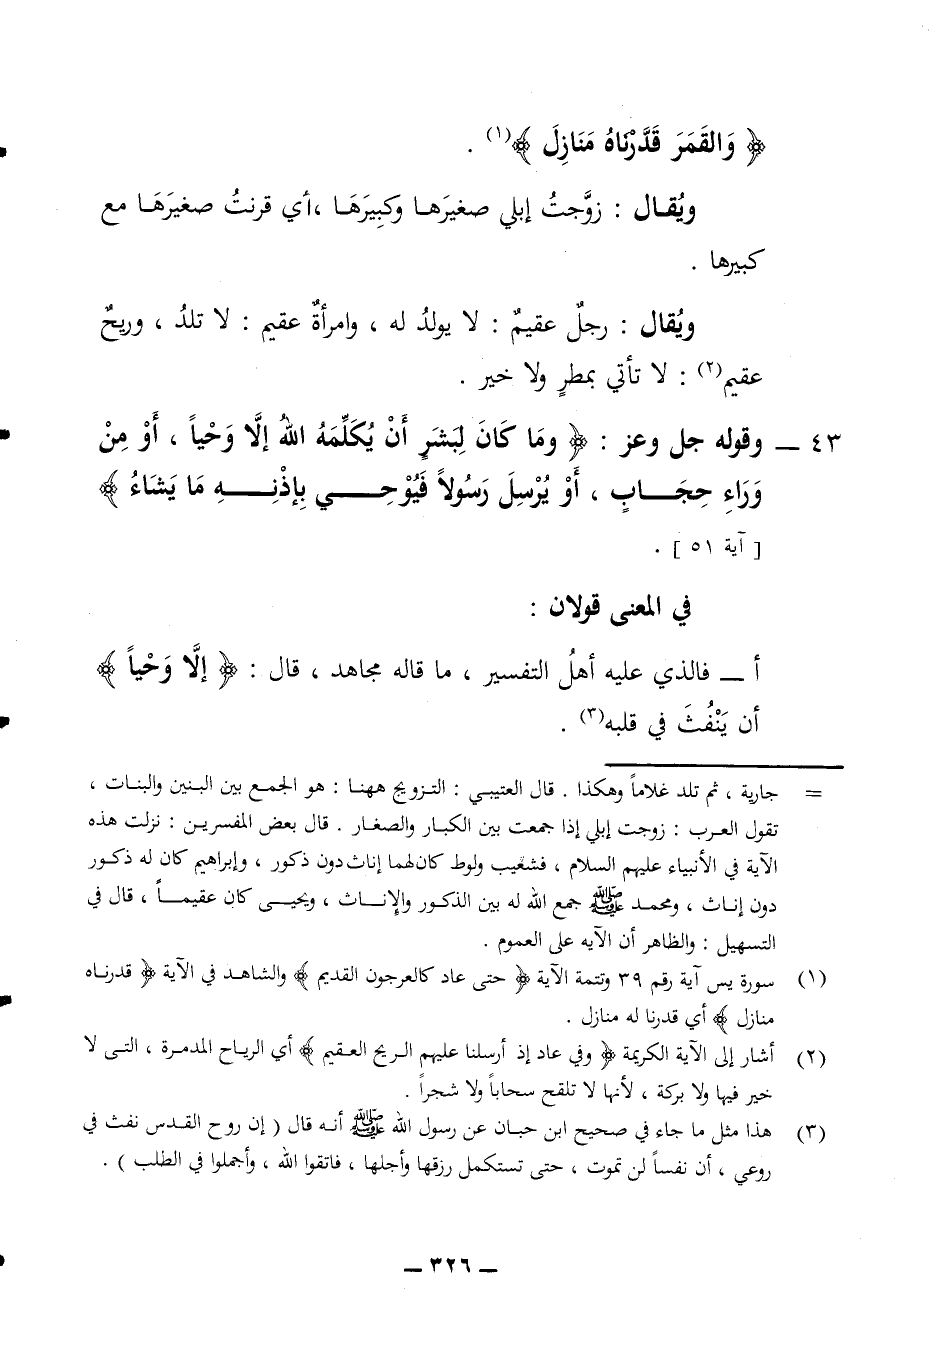 ﴿ وَالقَمَرَ قَدَّرْنَاهُ مَنَازِلَ ﴾(١) .
ويُقال : زوَّجتُ إبلي صغيرَها وكبِيرَهَا ،أي قرنتُ صغيرَهَا مع
كبيرها .
ويُقال : رجلٌ عقيمٌ : لا يولدُ له ، وامرأةٌ عقيم : لا تلدُ ، وريحٌ
عقيم(٢) : لا تأتي بمطرٍ ولا خير .
٤٣ ــ وقوله جل وعز : ﴿ ومَا كَانَ لِبَشَرٍ أَنْ يُكَلِّمَهُ اللهُ إلَّا وَحْياً ، أَوْ مِنْ
وَرَاءِ حِجَابٍ ، أَوْ يُرْسِلَ رَسُولاً فَيُوْحِي بِإذْنِهِ مَا يَشَاءُ ﴾
[ آية ٥١ ] .
في المعنى قولان :
أ ــ فالذي عليه أهلُ التفسير ، ما قاله مجاهد ، قال : ﴿ إلَّا وَحْياً ﴾
أن يَنْفُثَ في قلبه(٣) .
= جارية ، ثم تلد غلاماً وهكذا . قال العتيبي : التزويج ههنا : هو الجمع بين البنين والبنات ،
تقول العرب : زوجت إبلي إذا جمعت بين الكبار والصغار . قال بعض المفسرين : نزلت هذه
الآية في الأنبياء عليهم السلام ، فشعيب ولوط كان لهما إناث دون ذكور ، وإبراهيم كان له ذكور
دون إناث ، ومحمد ﷺ جمع الله له بين الذكور والإناث ، ويحيى كان عقيماً ، قال في
التسهيل : والظاهر أن الآيه على العموم .
(١) سورة يس آية رقم ٣٩ وتتمة الآية ﴿ حتى عاد كالعرجون القديم ﴾ والشاهد في الآية ﴿ قدرناه
منازل ﴾ أي قدرنا له منازل .
(٢) أشار إلى الآية الكريمة ﴿ وفي عاد إذ أرسلنا عليهم الريح العقيم ﴾ أي الرياح المدمرة ، التى لا
خير فيها ولا بركة ، لأنها لا تلقح سحاباً ولا شجراً .
(٣) هذا مثل ما جاء في صحيح ابن حبان عن رسول الله ﷺ أنه قال ( إن روح القدس نفث في
روعي ، أن نفساً لن تموت ، حتى تستكمل رزقها وأجلها ، فاتقوا الله ، وأجملوا في الطلب ) .
ــ ٣٢٦ ــ